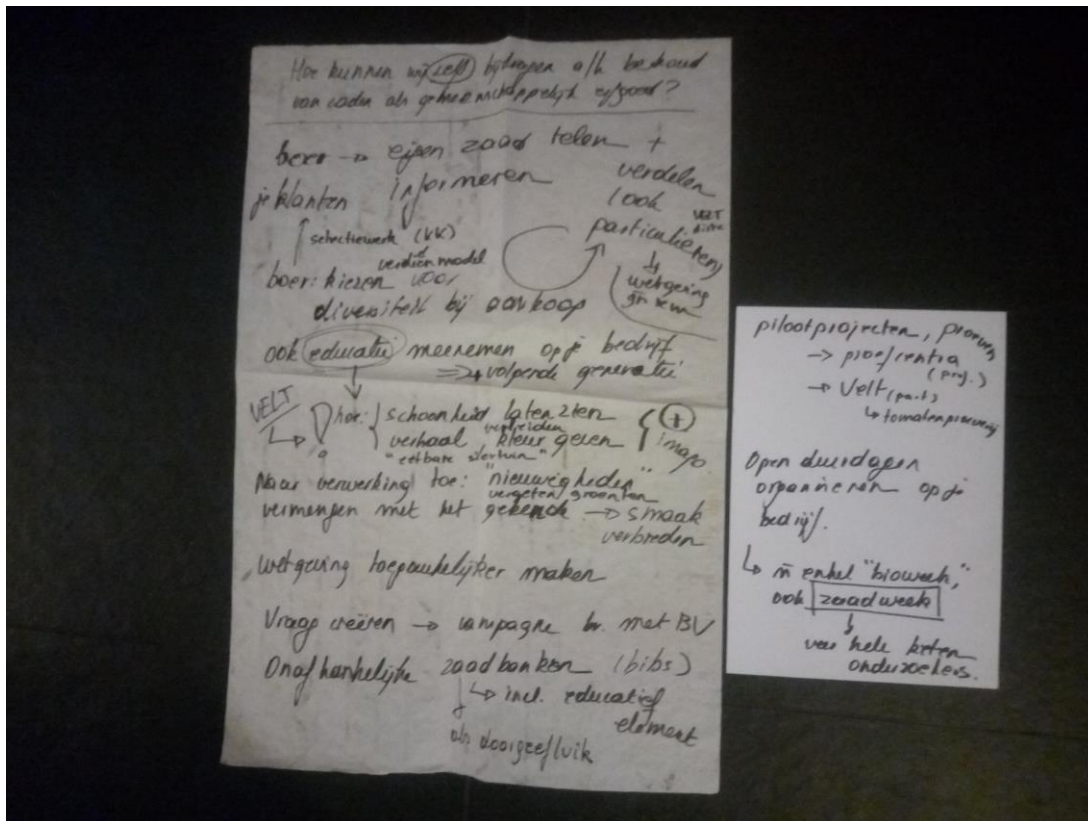 Hoe kunnen wij zelf bijdragen a/h behoud
van zaden als gemeenschappelijk erfgoed?
boer → eigen zaad telen +
verdelen
je klanten informeren
(ook
particulieren)
VELT
selectiewerk (KK)
verdienmodel
↓
wetgeving
boer: kiezen voor
diversiteit bij aankoop
ook educatie meenemen op je bedrijf
=> volgende generatie
VELT
hoe: schoonheid laten zien
verhaal, kleur geven
"eetbare siertuin"
+
imago
Naar verwerking toe: "nieuwigheden"
vergeten groenten
vermengen met het gekende → smaak
verbreden
wetgeving toegankelijker maken
Vraag creëren → campagne bv. met BV
Onafhankelijke zaadbanken (bibs)
↳ incl. educatief
element
als doorgeefluik
pilootprojecten, proeven
→ proefcentra
(prof.)
→ Velt (part.)
↳ tomatenproeverij
Open deurdagen
organiseren op je
bedrijf.
↳ ñ enkel "bioweek",
ook zaadweek
↓
voor hele keten
onderzoekers.